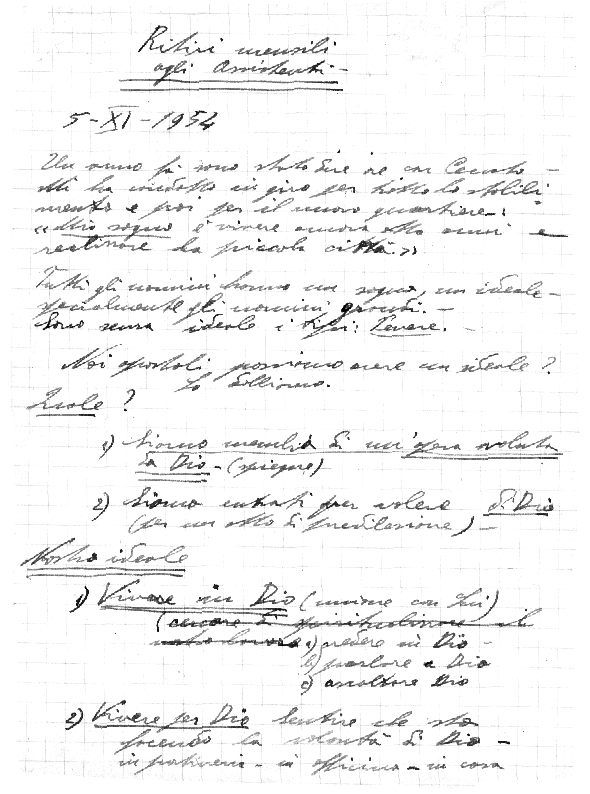 Ritiri mensili
agli Assistenti -
5 - XI - 1954
Un anno fa sono stato
Mi ha condotto in giro per tutto lo stabili
mento e poi per il nuovo quartiere:
«Mio sogno è vivere ancora otto anni e
realizzare la piccola città»
Tutti gli uomini hanno un sogno, un ideale -
specialmente gli uomini grandi. -
Sono senza ideale i tipi: Tenere. -
Noi apostoli possiamo avere un ideale?
Lo dobbiamo.
Quale?
1) Siamo membri di un'opera voluta
da Dio - (spiegare)
2) Siamo entrati per volere di Dio
(per un atto di predilezione) -
Nostro ideale
1) Vivere in Dio (unione con Lui)
(cercare di spiritualizzare il
nostro lavoro a) vedere in Dio -
b) parlare a Dio
c) ascoltare Dio
2) Vivere per Dio Sentire che sto
facendo la volontà di Dio -
in portineria - in officina - in casa